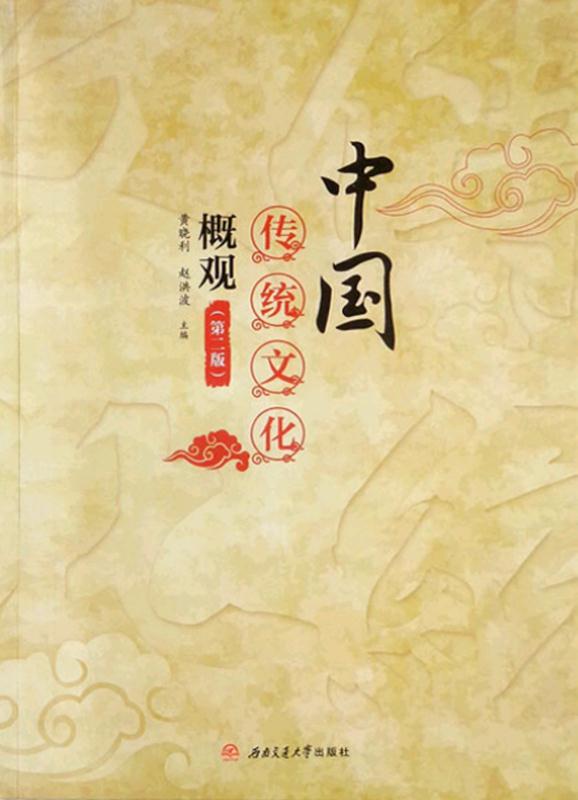 中国
传统文化
概观
（第二版）
黄晓利 赵洪波 主编
西南交通大学出版社